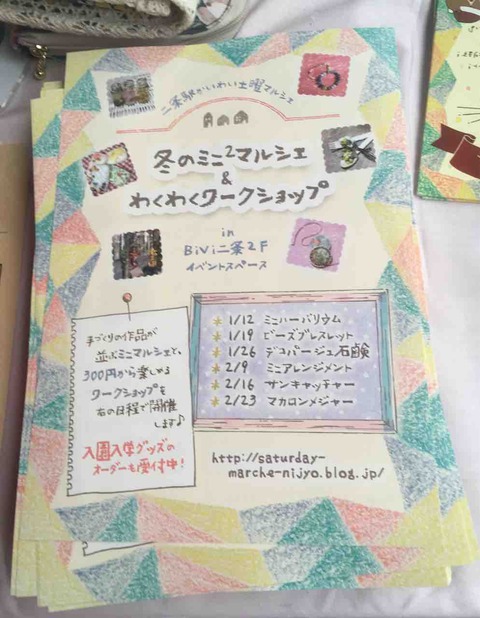 二条駅かいわい土曜マルシェ
冬のミニ²マルシェ
&
わくわくワークショップ
in
BiVi二条2F
イベントスペース
手づくりの作品が
並ぶミニマルシェと、
300円から楽しめる
ワークショップを
右の日程で開催
します♪
入園入学グッズの
オーダーも受付中!
1/12 ミニハーバリウム
1/19 ビーズブレスレット
1/26 デコパージュ石鹸
2/9 ミニアレンジメント
2/16 サンキャッチャー
2/23 マカロンメジャー
http://saturday-
marche-nijyo.blog.jp/